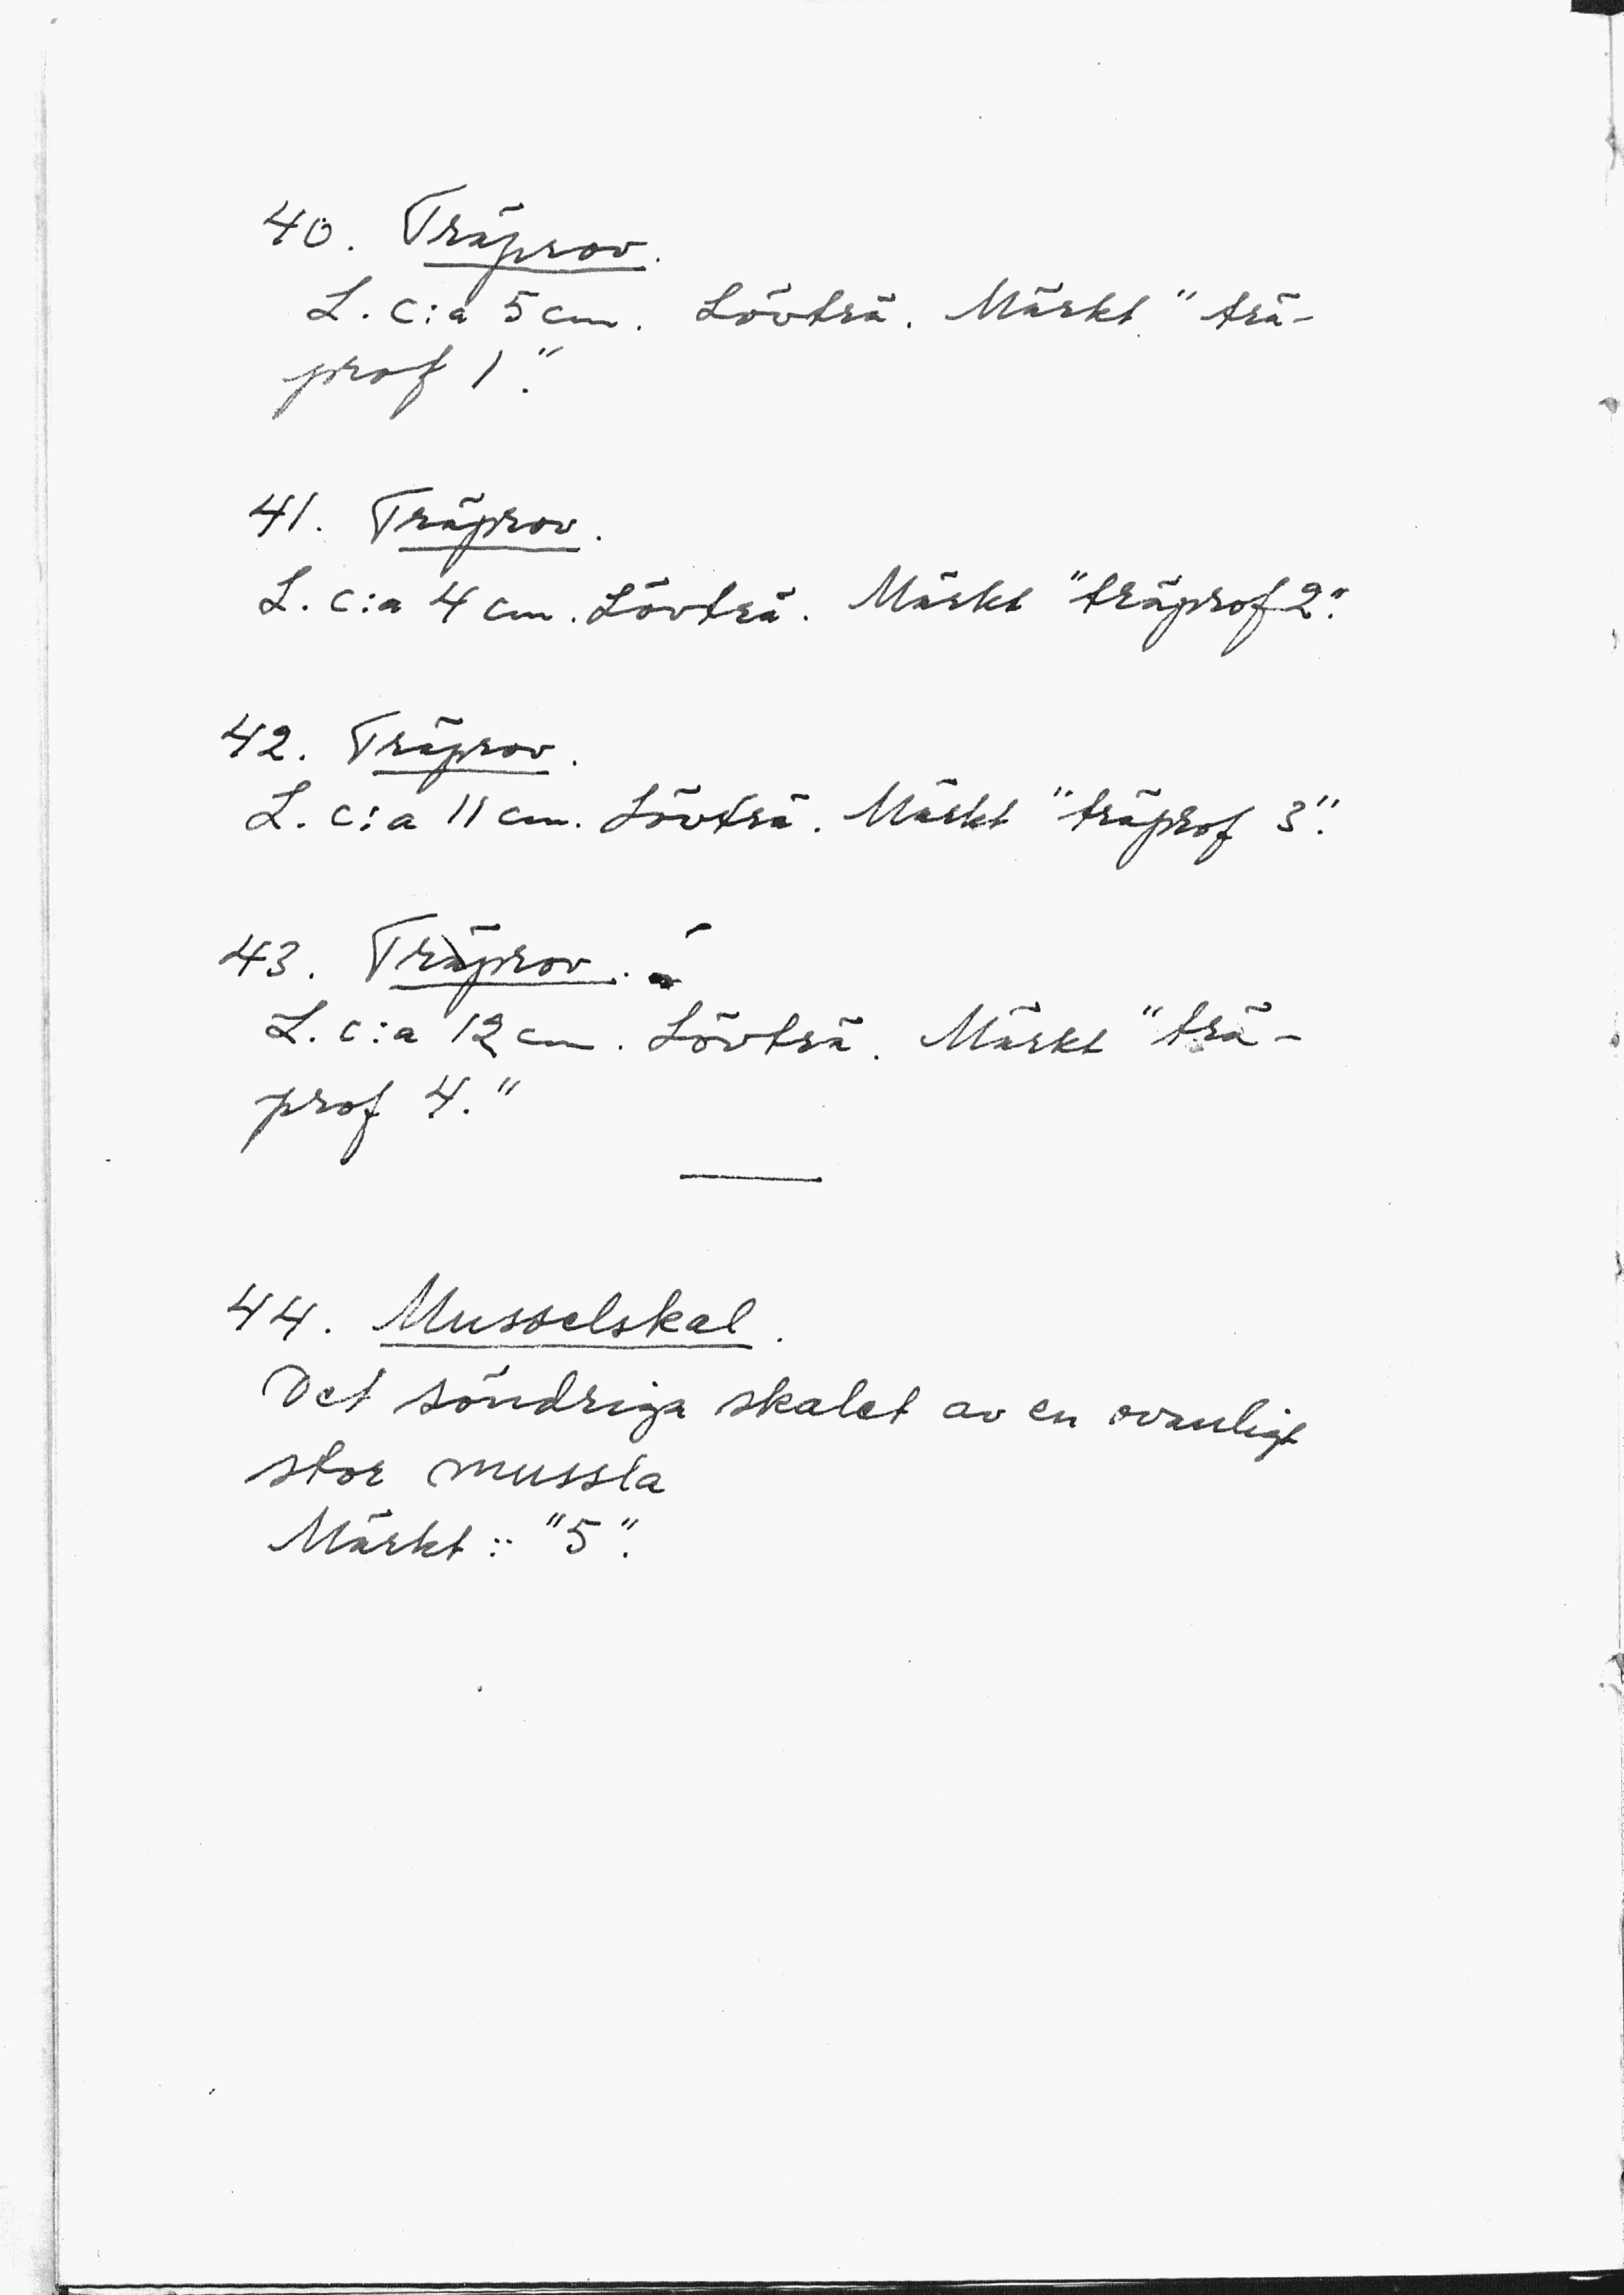 40. Träprov.
L. c:a 5 cm. Lövträ. Märkt "trä-
prof 1".
41. Träprov.
L. c:a 4 cm. Lövträ. Märkt "träprof 2".
42. Träprov.
L. c:a 11 cm. Lövträ. Märkt "träprof 3".
43. Träprov.
L. c:a 12 cm. Lövträ. Märkt "trä-
prof 4."
44. Musselskal.
Det söndriga skalet av en ovanligt
stor mussla
Märkt: "5".